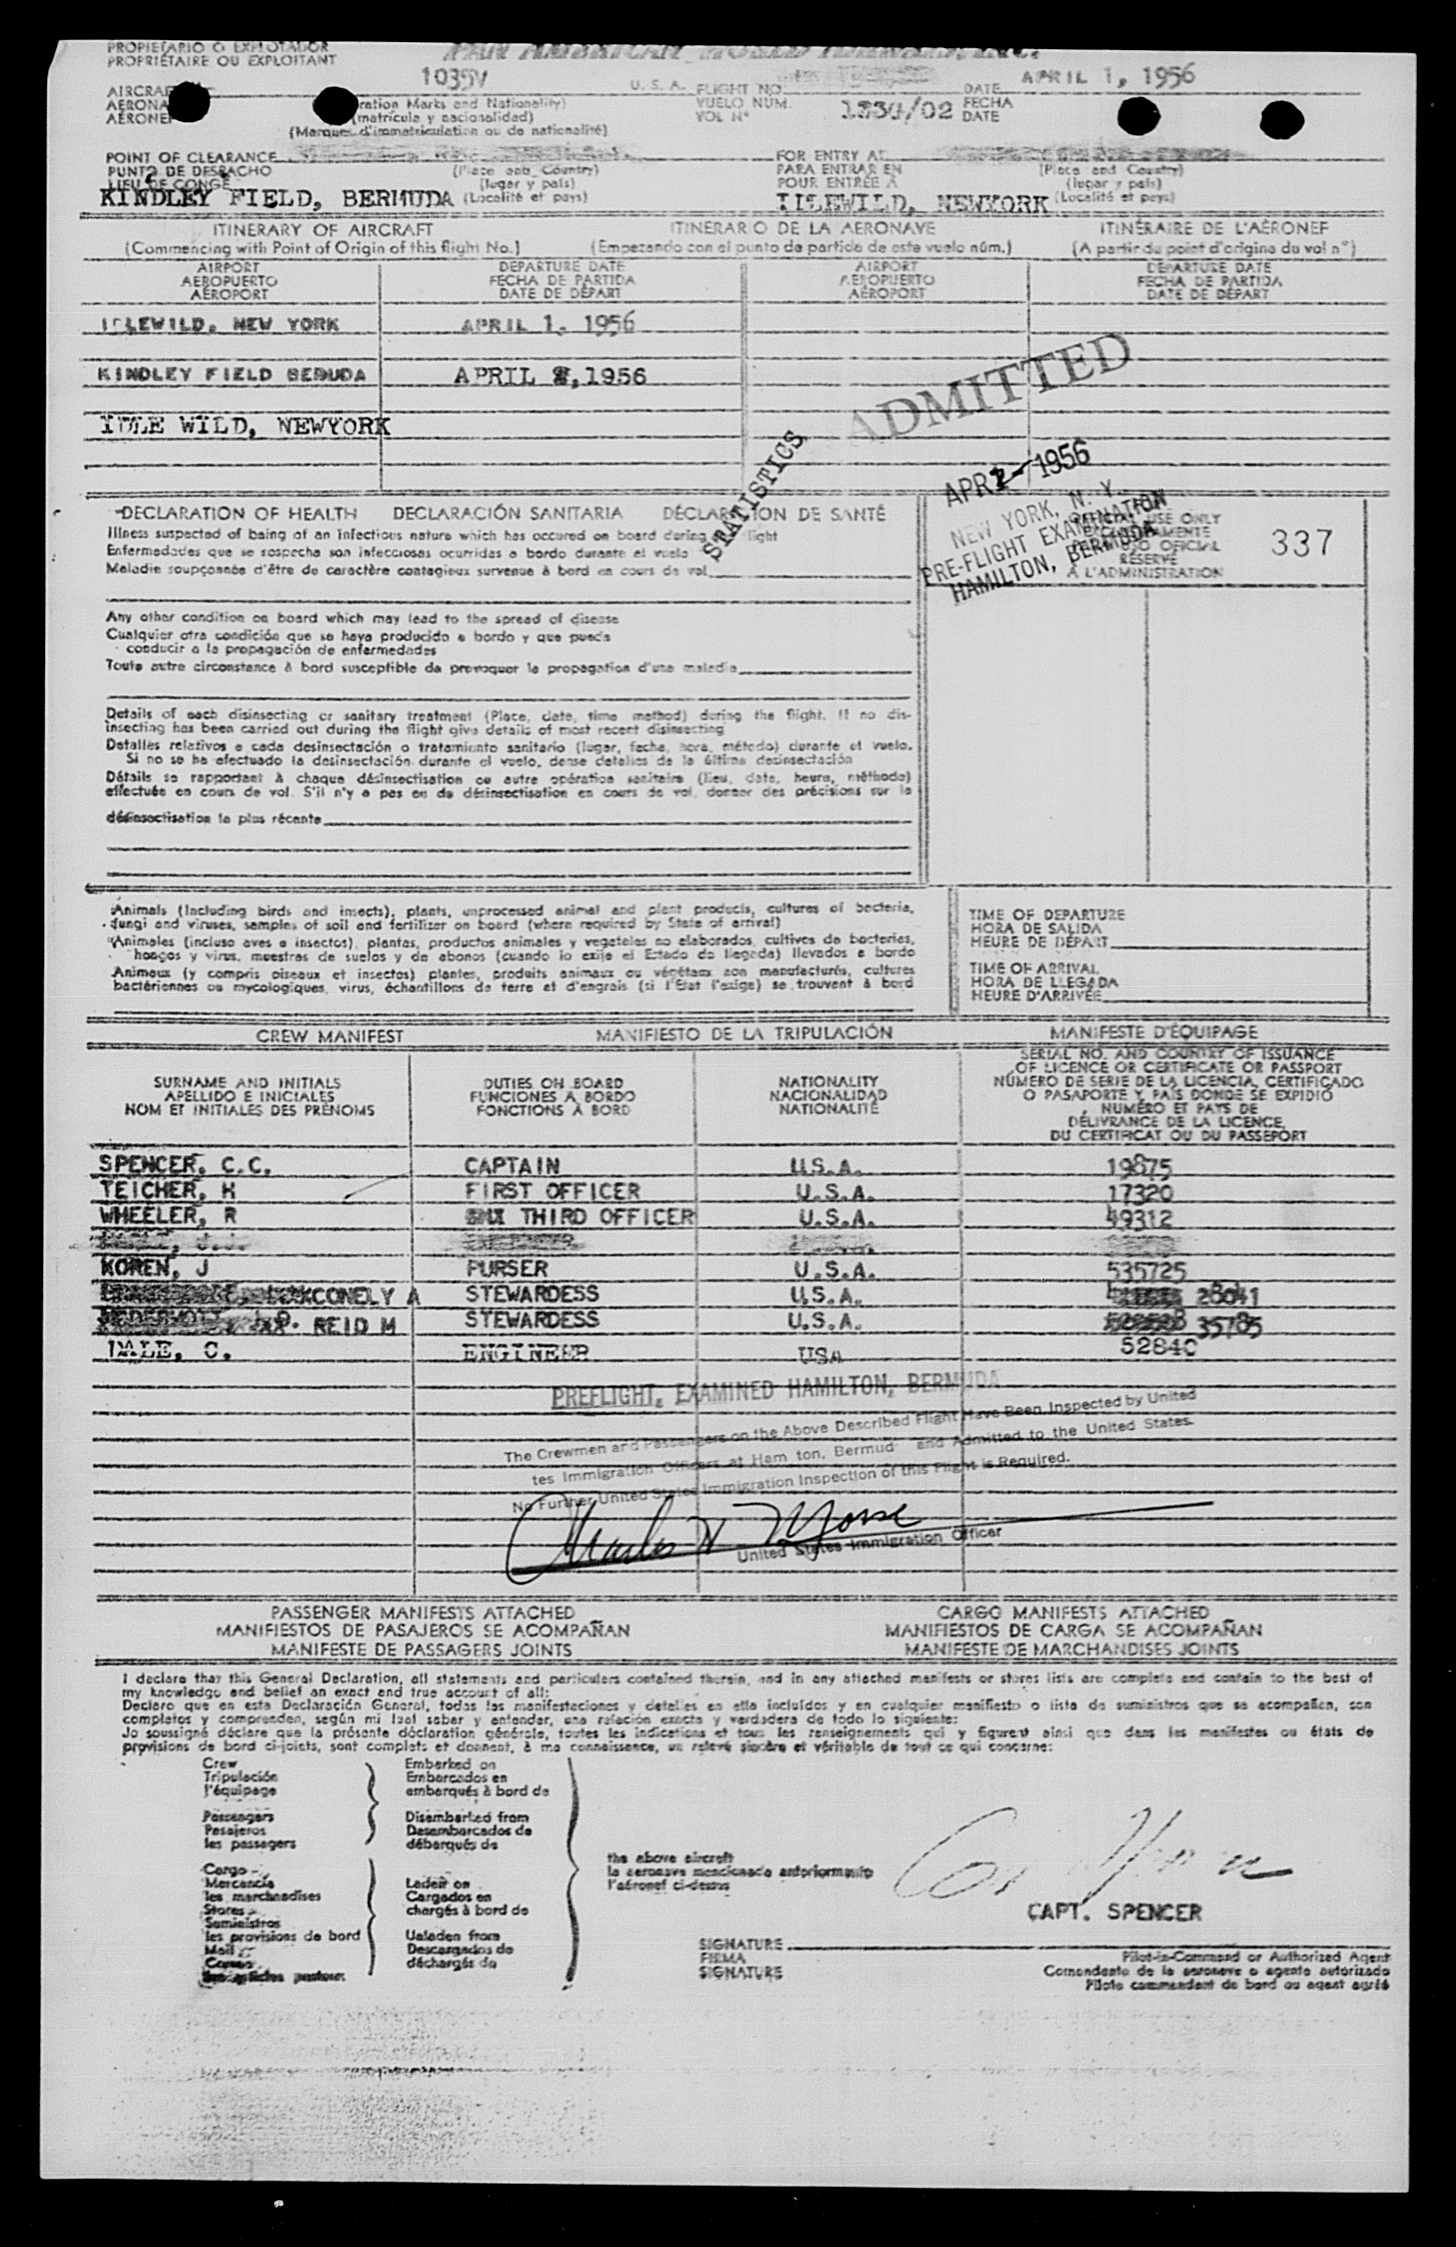 PROPIETARIO O EXPLOTADOR
PROPRIÉTAIRE OU EXPLOITANT
PAN AMERICAN WORLD AIRWAYS, INC.
1035V U. S. A. FLIGHT NO. DATE APRIL 1, 1956
VUELO NUM. 1534/02 FECHA
VOL Nº DATE
(matrícula y nacionalidad)
(Marques d'immatriculation ou de nationalité)
POINT OF CLEARANCE FOR ENTRY AT
PUNTO DE DESPACHO (Place and Country) PARA ENTRAR EN (Place and Country)
LIEU DE CONGE (lugar y país) POUR ENTRÉE A (lugar y país)
KINDLEY FIELD, BERMUDA (Localité et pays) IDLEWILD, NEWYORK (Localité et pays)
ITINERARY OF AIRCRAFT ITINERARIO DE LA AERONAVE ITINÉRAIRE DE L'AÉRONEF
(Commencing with Point of Origin of this flight No.) (Empezando con el punto de partida de este vuelo núm.) (A partir du point d'origine du vol nº)
AIRPORT DEPARTURE DATE AIRPORT DEPARTURE DATE
AEROPUERTO FECHA DE PARTIDA AEROPUERTO FECHA DE PARTIDA
AÉROPORT DATE DE DÉPART AÉROPORT DATE DE DÉPART
IDLEWILD, NEW YORK APRIL 1, 1956
KINDLEY FIELD BEMUDA APRIL 2,1956
IDLE WILD, NEWYORK
ADMITTED
APR 2-1956
NEW YORK, N. Y.
PRE-FLIGHT EXAMINATION
HAMILTON, BERMUDA
STATISTICS
DECLARATION OF HEALTH DECLARACIÓN SANITARIA DÉCLARATION DE SANTÉ
Illness suspected of being of an infectious nature which has occured on board during flight
Enfermedades que se sospecha son infecciosas ocurridas a bordo durante el vuelo
Maladie soupçonnée d'être de caractère contagieux survenue à bord en cours de vol
USE ONLY
USO OFICIAL
RÉSERVÉ
A L'ADMINISTRATION
337
Any other condition on board which may lead to the spread of disease
Cualquier otra condición que se haya producido a bordo y que pueda
conducir a la propagación de enfermedades
Toute autre circonstance à bord susceptible de provoquer la propagation d'une maladie
Details of each disinsecting or sanitary treatment (Place, date, time method) during the flight. If no dis-
insecting has been carried out during the flight give details of most recent disinsecting
Detalles relativos a cada desinsectación o tratamiento sanitario (lugar, fecha, hora, método) durante el vuelo.
Si no se ha efectuado la desinsectación durante el vuelo, dense detalles de la última desinsectación
Détails se rapportant à chaque désinsectisation ou autre opération sanitaire (lieu, date, heure, méthode)
effectuée en cours de vol. S'il n'y a pas eu de désinsectisation en cours de vol, donner des précisions sur la
désinsectisation la plus récente
Animals (Including birds and insects), plants, unprocessed animal and plant products, cultures of bacteria,
fungi and viruses, samples of soil and fertilizer on board (where required by State of arrival)
Animales (incluso aves e insectos), plantas, productos animales y vegetales no elaborados, cultivos de bacterias,
hongos y virus, muestras de suelos y de abonos (cuando lo exija el Estado de llegada) llevados a bordo
Animaux (y compris oiseaux et insectes) plantes, produits animaux ou végétaux non manufacturés, cultures
bactériennes ou mycologiques, virus, échantillons de terre et d'engrais (si l'État l'exige) se trouvant à bord
TIME OF DEPARTURE
HORA DE SALIDA
HEURE DE DÉPART
TIME OF ARRIVAL
HORA DE LLEGADA
HEURE D'ARRIVÉE
CREW MANIFEST MANIFIESTO DE LA TRIPULACIÓN MANIFESTE D'ÉQUIPAGE
SURNAME AND INITIALS
APELLIDO E INICIALES
NOM ET INITIALES DES PRÉNOMS
DUTIES ON BOARD
FUNCIONES A BORDO
FONCTIONS À BORD
NATIONALITY
NACIONALIDAD
NATIONALITÉ
SERIAL NO. AND COUNTRY OF ISSUANCE
OF LICENCE OR CERTIFICATE OR PASSPORT
NÚMERO DE SERIE DE LA LICENCIA, CERTIFICADO
O PASAPORTE Y PAÍS DONDE SE EXPIDIÓ
NUMÉRO ET PAYS DE
DÉLIVRANCE DE LA LICENCE,
DU CERTIFICAT OU DU PASSEPORT
SPENCER, C.C. CAPTAIN U.S.A. 19875
TEICHER, H FIRST OFFICER U.S.A. 17320
WHEELER, R THIRD OFFICER U.S.A. 49312
KOREN, J PURSER U.S.A. 535725
CONELY A STEWARDESS U.S.A. 28041
REID M STEWARDESS U.S.A. 35785
DALE, C. ENGINEER USA 52840
PREFLIGHT, EXAMINED HAMILTON, BERMUDA
The Crewmen and Passengers on the Above Described Flight Have Been Inspected by United
tes Immigration Officers at Ham ton, Bermud and Admitted to the United States.
No Further United States Immigration Inspection of this Flight is Required.
Charles W Morse
United States Immigration Officer
PASSENGER MANIFESTS ATTACHED CARGO MANIFESTS ATTACHED
MANIFIESTOS DE PASAJEROS SE ACOMPAÑAN MANIFIESTOS DE CARGA SE ACOMPAÑAN
MANIFESTE DE PASSAGERS JOINTS MANIFESTE DE MARCHANDISES JOINTS
I declare that this General Declaration, all statements and particulars contained therein, and in any attached manifests or stores lists are complete and contain to the best of
my knowledge and belief an exact and true account of all:
Declaro que en esta Declaración General, todas las manifestaciones y detalles en ella incluídos y en cualquier manifiesto o lista de suministros que se acompañen, son
completos y comprenden, según mi leal saber y entender, una relación exacta y verdadera de todo lo siguiente:
Je soussigné déclare que la présente déclaration générale, toutes les indications et tous les renseignements qui y figurent ainsi que dans les manifestes ou états de
provisions de bord ci-joints, sont complets et donnent, à ma connaissance, un relevé sincère et véritable de tout ce qui concerne:
Crew Embarked on
Tripulación Embarcados en
l'équipage embarqués à bord de
Passengers Disembarked from
Pasajeros Desembarcados de
les passagers débarqués de
the above aircraft
la aeronave mencionada anteriormente
l'aéronef ci-dessus
Cargo
Mercancía Laden on
les marchandises Cargados en
Stores chargés à bord de
Suministros
les provisions de bord Unladen from
Mail Descargados de
Correo déchargés de
CAPT. SPENCER
SIGNATURE
FIRMA
SIGNATURE
Pilot-in-Command or Authorized Agent
Comandante de la aeronave o agente autorizado
Pilote commandant de bord ou agent agréé